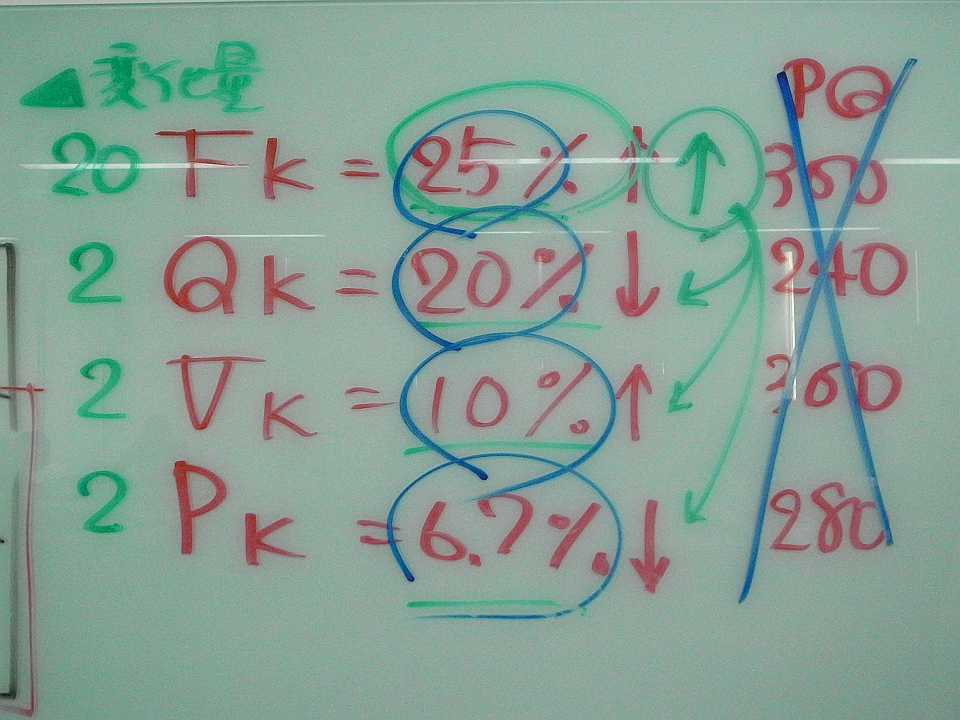 ▲変化量 PQ
20 FK = 25% ↑ ↑ 360
2 QK = 20% ↓ 240
2 VK = 10% ↑ 360
2 PK = 6.7% ↓ 280